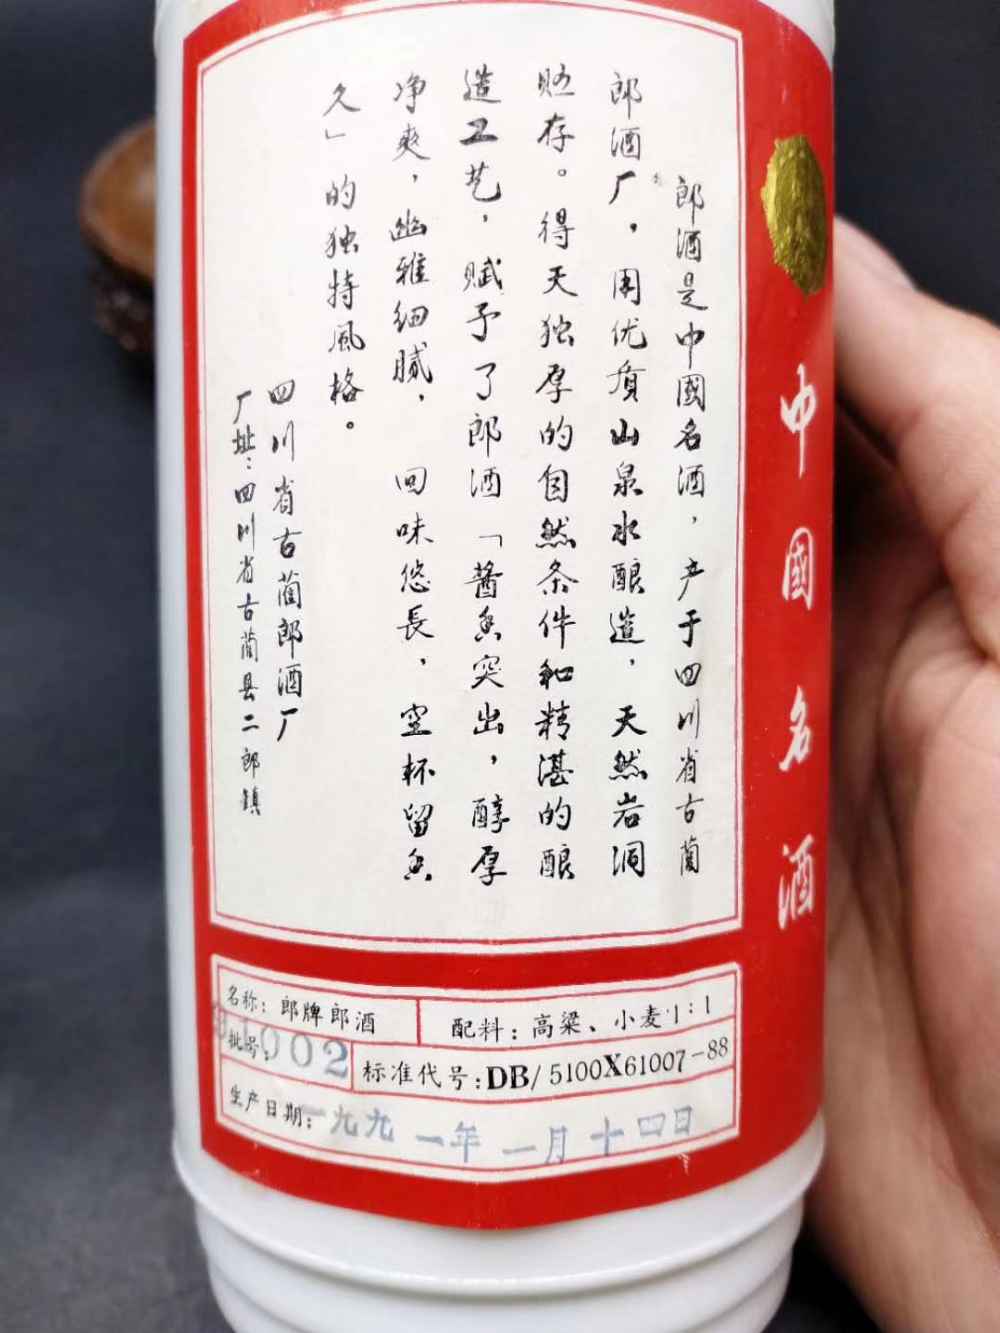 郎酒是中國名酒，产于四川省古藺
郎酒厂，用优质山泉水酿造，天然岩洞
贮存。得天独厚的自然条件和精湛的酿
造工艺，赋予了郎酒「酱香突出，醇厚
净爽，幽雅细腻，回味悠長，空杯留香
久」的独特風格。
四川省古藺郎酒厂
厂址：四川省古藺县二郎鎮
中國名酒
名称：郎牌郎酒
配料：高粱、小麦1：1
批号：002
标准代号：DB/5100X61007-88
生产日期：一九九一年一月十四日